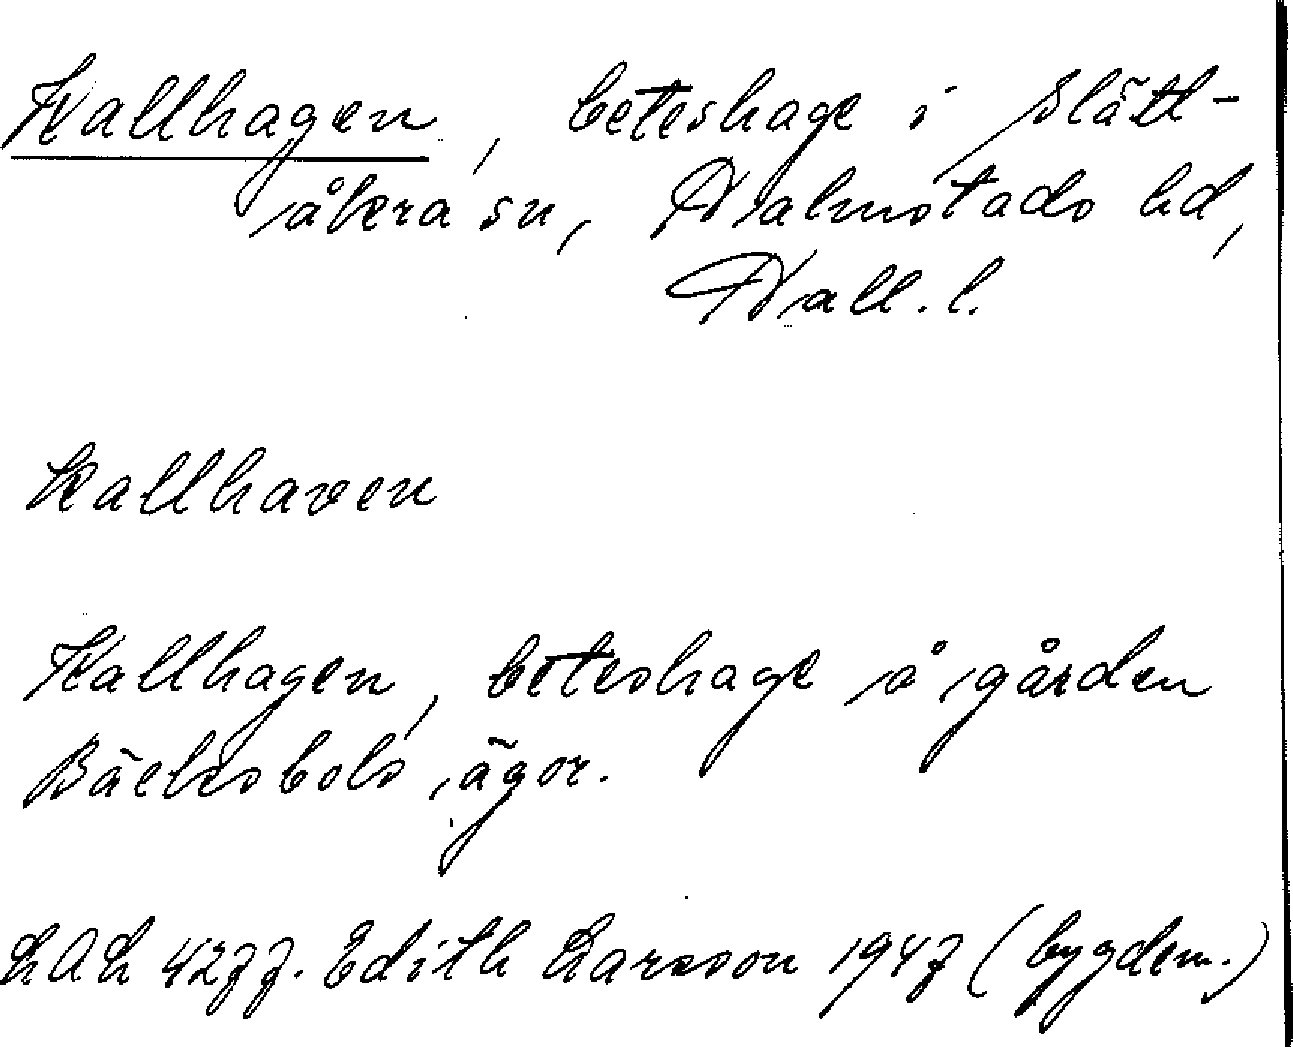 Kallhagen, beteshage i Slätt-
åkra sn, Halmstads hd,
Hall. l.
kallhaven
Kallhagen, beteshage å gården
Bäcksbols ägor.
LAL 4277. Edith Larsson 1947 (bygdem.)